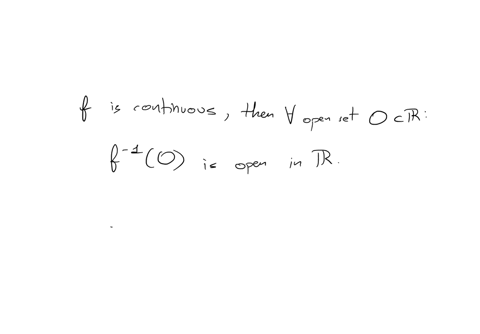 f is continuous, then ∀ open set O ⊂ ℝ:
f⁻¹(O) is open in ℝ.